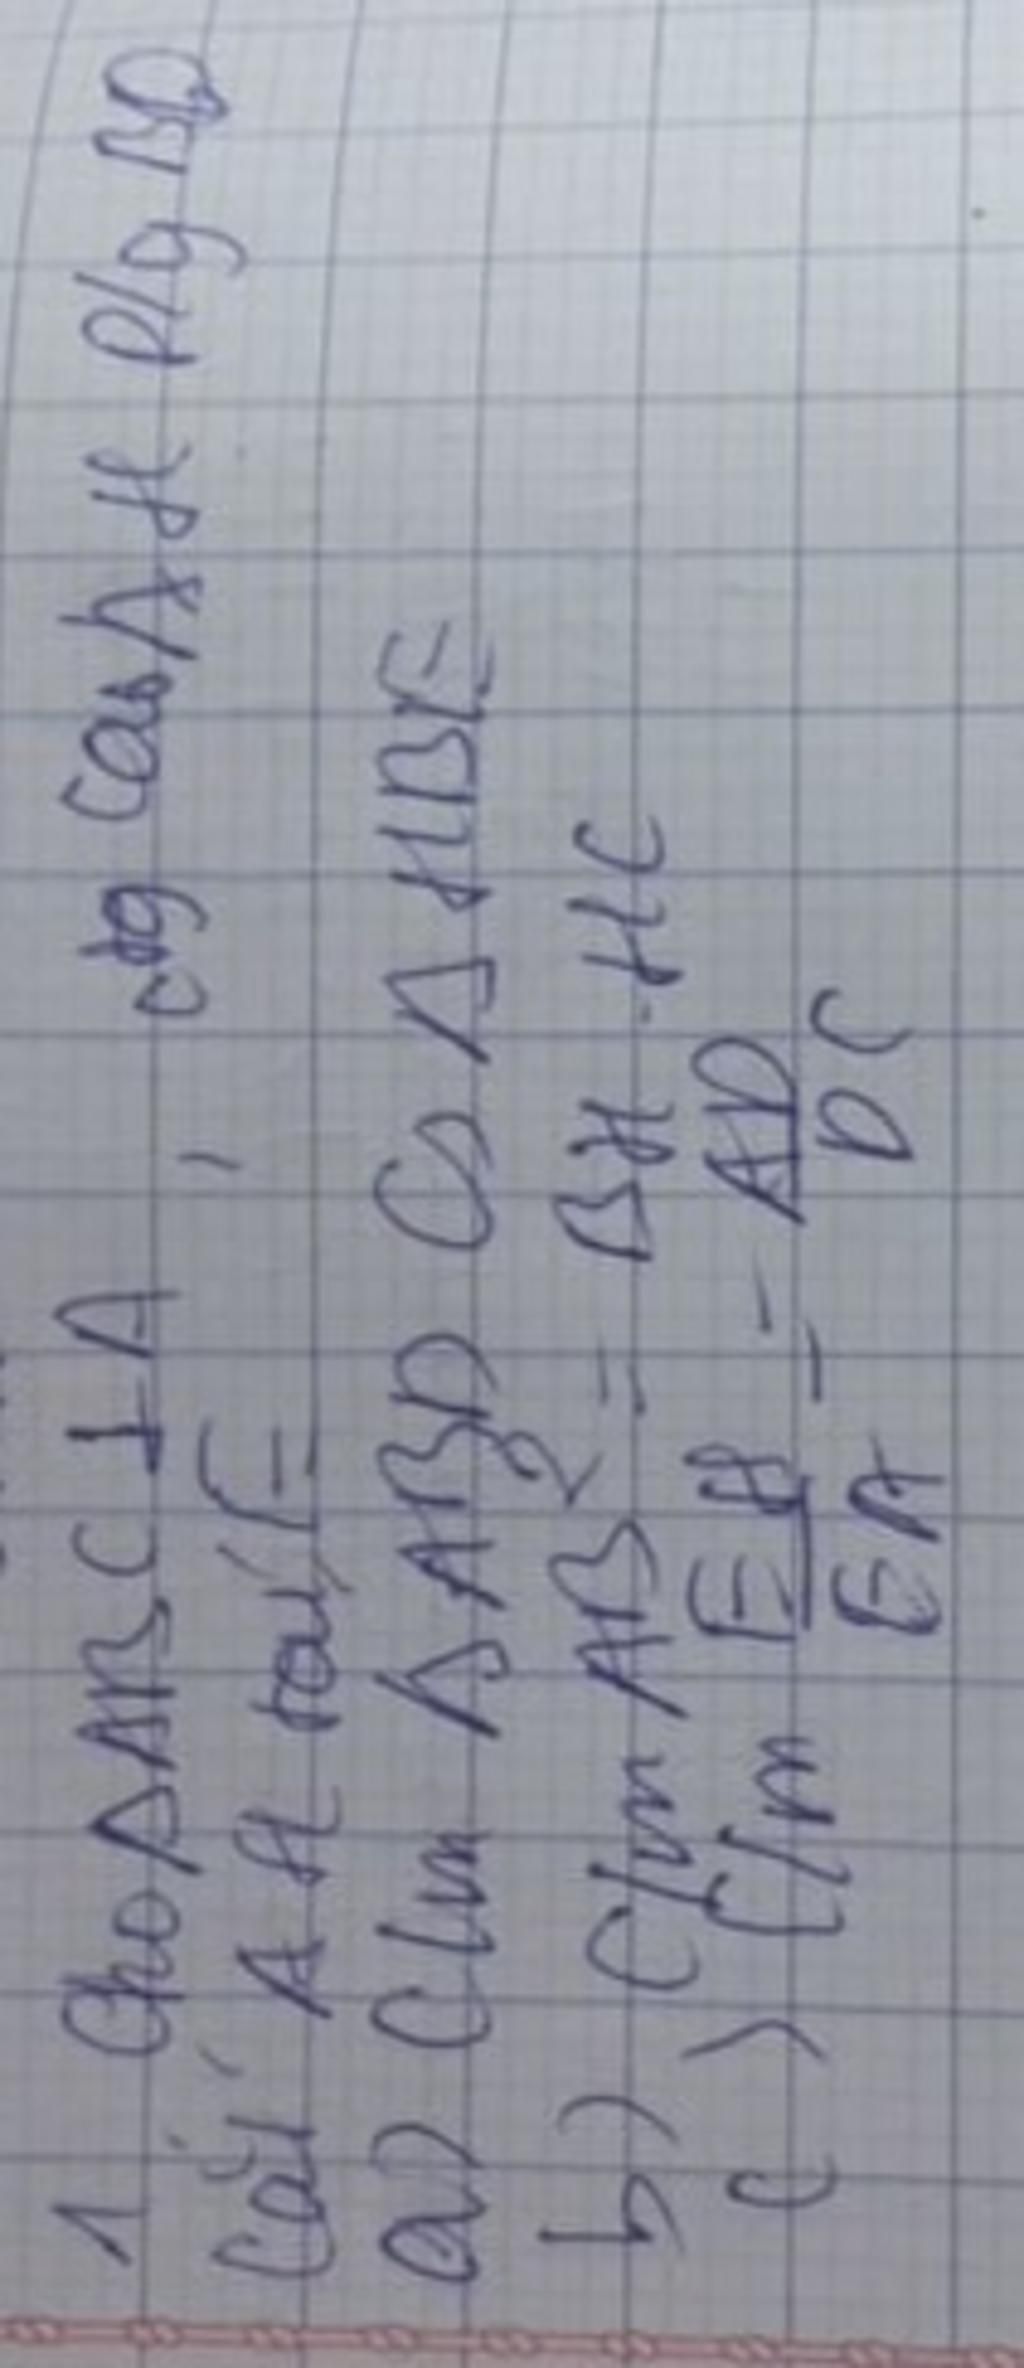 1 Cho ΔABC ⊥ A, đg cao AH P/g BD
Cắt AH tại E
a) C/m ΔABD ∽ Δ HBE
b) C/m AB² = BH . HC
c) C/m EH/EA = AD/DC